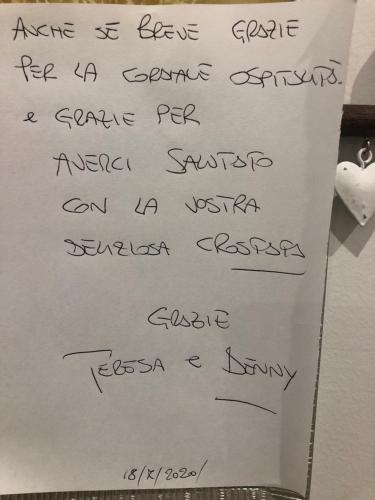 ANCHE SE BREVE GRAZIE
PER LA CORDIALE OSPITALITÀ.
e GRAZIE PER
AVERCI SALUTATO
CON LA VOSTRA
DELIZIOSA CROSTATA
GRAZIE
TERESA e DENNY
18/X/2020/